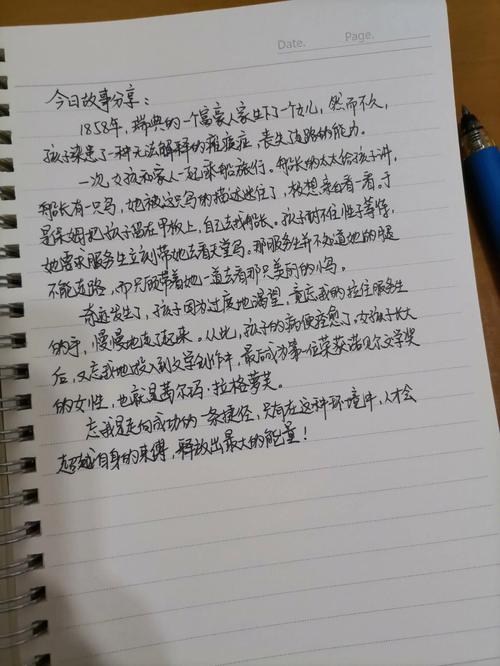 Date.
Page.
今日故事分享：
1858年，瑞典的一个富豪人家生下了一个女儿，然而不久，
孩子染患了一种无法解释的瘫痪症，丧失了走路的能力。
一次，女孩和家人一起乘船旅行。船长的太太给孩子讲，
船长有一只鸟，她被这只鸟的描述迷住了，极想亲自看一看。于
是保姆把孩子留在甲板上，自己去找船长。孩子耐不住性子等待，
她要求服务生立刻带她去看天堂鸟。那服务生并不知道她的腿
不能走路，而只顾带着她一道去看那只美丽的小鸟。
奇迹发生了，孩子因为过度地渴望，竟忘我的拉住服务生
的手，慢慢地走了起来。从此，孩子的病便痊愈了。女孩子长大
后，又忘我地投入到文学创作中，最后成为第一位荣获诺贝尔文学奖
的女性，也就是茜尔玛·拉格萝芙。
忘我是走向成功的一条捷径，只有在这种环境中，人才会
超越自身的束缚，释放出最大的能量！